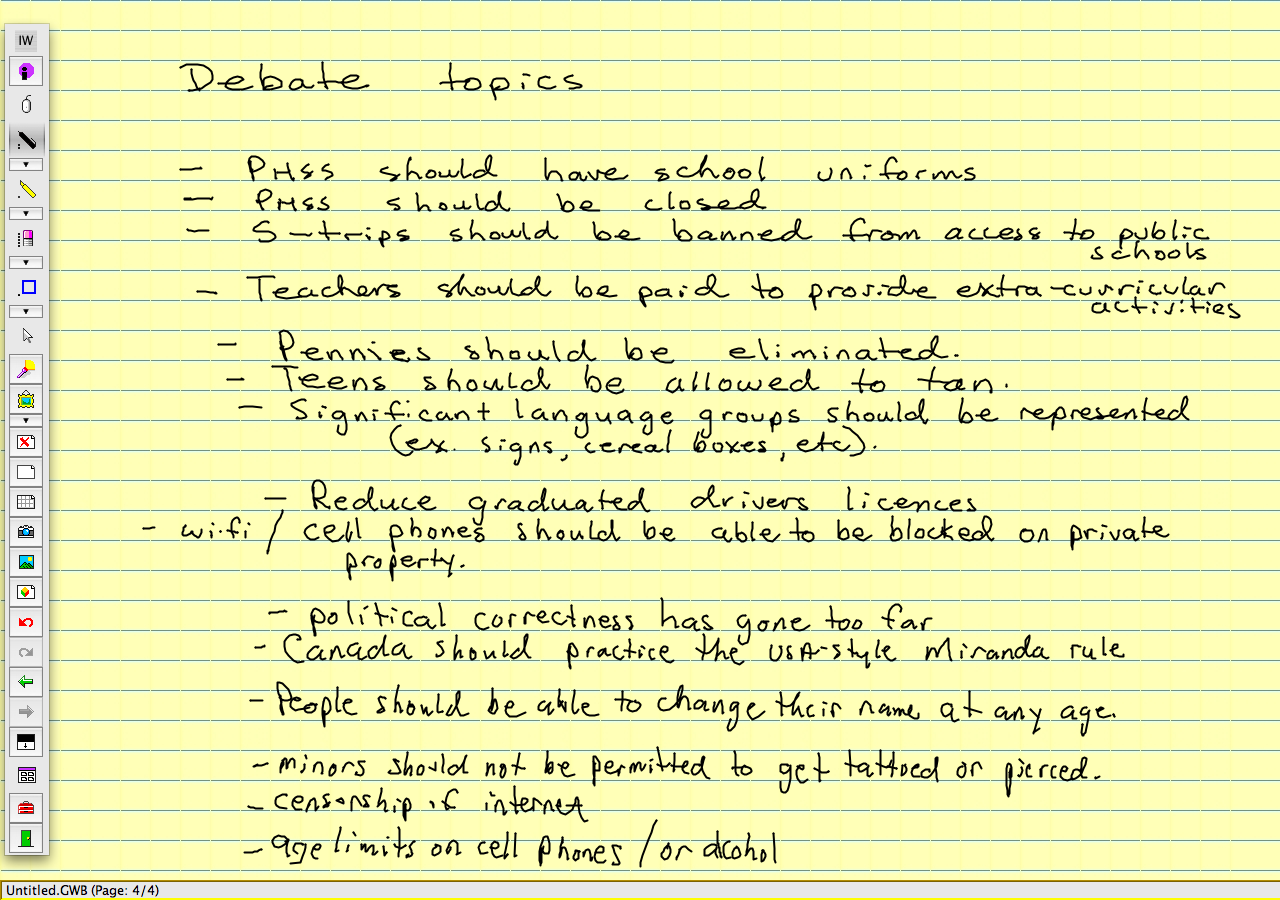 IW
Debate topics
- PHSS should have school uniforms
- PMSS should be closed
- S-trips should be banned from access to public
schools
- Teachers should be paid to provide extra-curricular
activities
- Pennies should be eliminated.
- Teens should be allowed to tan.
- Significant language groups should be represented
(ex. signs, cereal boxes, etc).
- Reduce graduated drivers licences
- wi-fi / cell phones should be able to be blocked on private
property.
- political correctness has gone too far
- Canada should practice the USA-style Miranda rule
- People should be able to change their name at any age.
- minors should not be permitted to get tattoed or pierced.
- censorship of internet
- age limits on cell phones / or alcohol
Untitled.GWB (Page: 4/4)